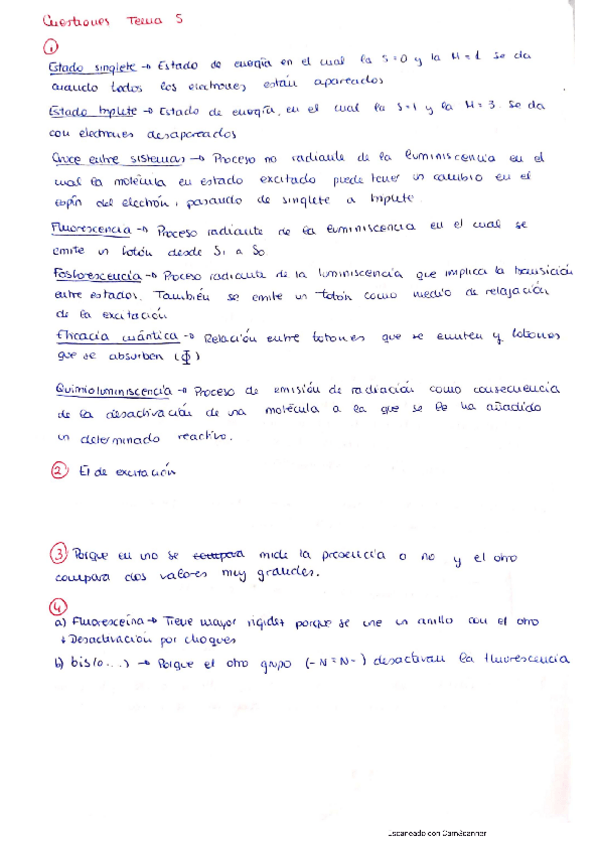 Cuestiones Tema 5
①
Estado singlete → Estado de energía en el cual la S=0 y la M=1 se da
cuando todos los electrones están apareados
Estado triplete → Estado de energía, en el cual la S=1 y la M=3. Se da
con electrones desapareados
Cruce entre sistemas → Proceso no radiante de la luminiscencia en el
cual la molécula en estado excitado puede tener un cambio en el
espín del electrón, pasando de singlete a triplete.
Fluorescencia → Proceso radiante de la luminiscencia en el cual se
emite un fotón desde S1 a S0
Fosforescencia → Proceso radiante de la luminiscencia que implica la transición
entre estados. También se emite un fotón como medio de relajación
de la excitación
Eficacia cuántica → Relación entre fotones que se emiten y fotones
que se absorben (Φ)
Quimioluminiscencia → Proceso de emisión de radiación como consecuencia
de la desactivación de una molécula a la que se le ha añadido
un determinado reactivo.
② El de excitación
③ Porque en uno se compara mide la presencia o no y el otro
compara dos valores muy grandes.
④
a) Fluoresceína → Tiene mayor rigidez porque se une un anillo con el otro
↓ Desactivación por choques
b) bis(o...) → Porque el otro grupo (-N=N-) desactivan la fluorescencia
Escaneado con CamScanner